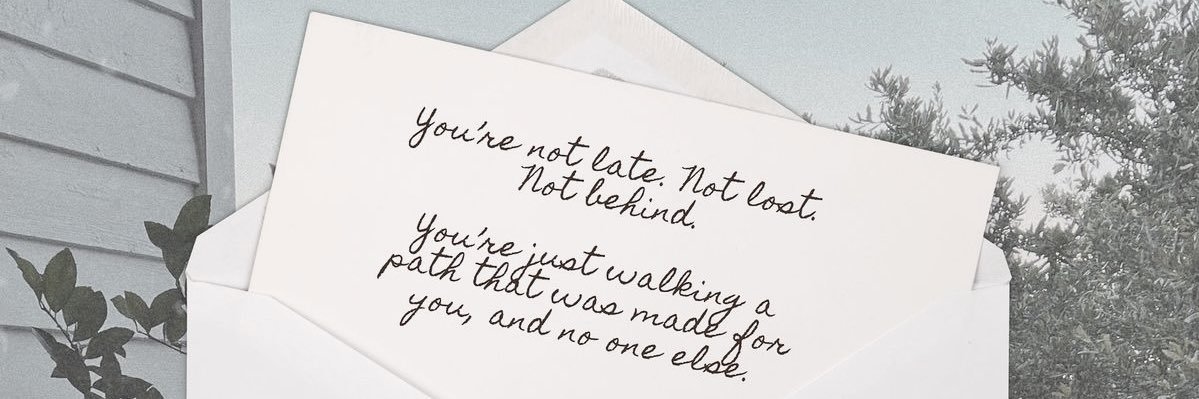 You're not late. Not lost.
Not behind.
You're just walking a
path that was made for
you, and no one else.